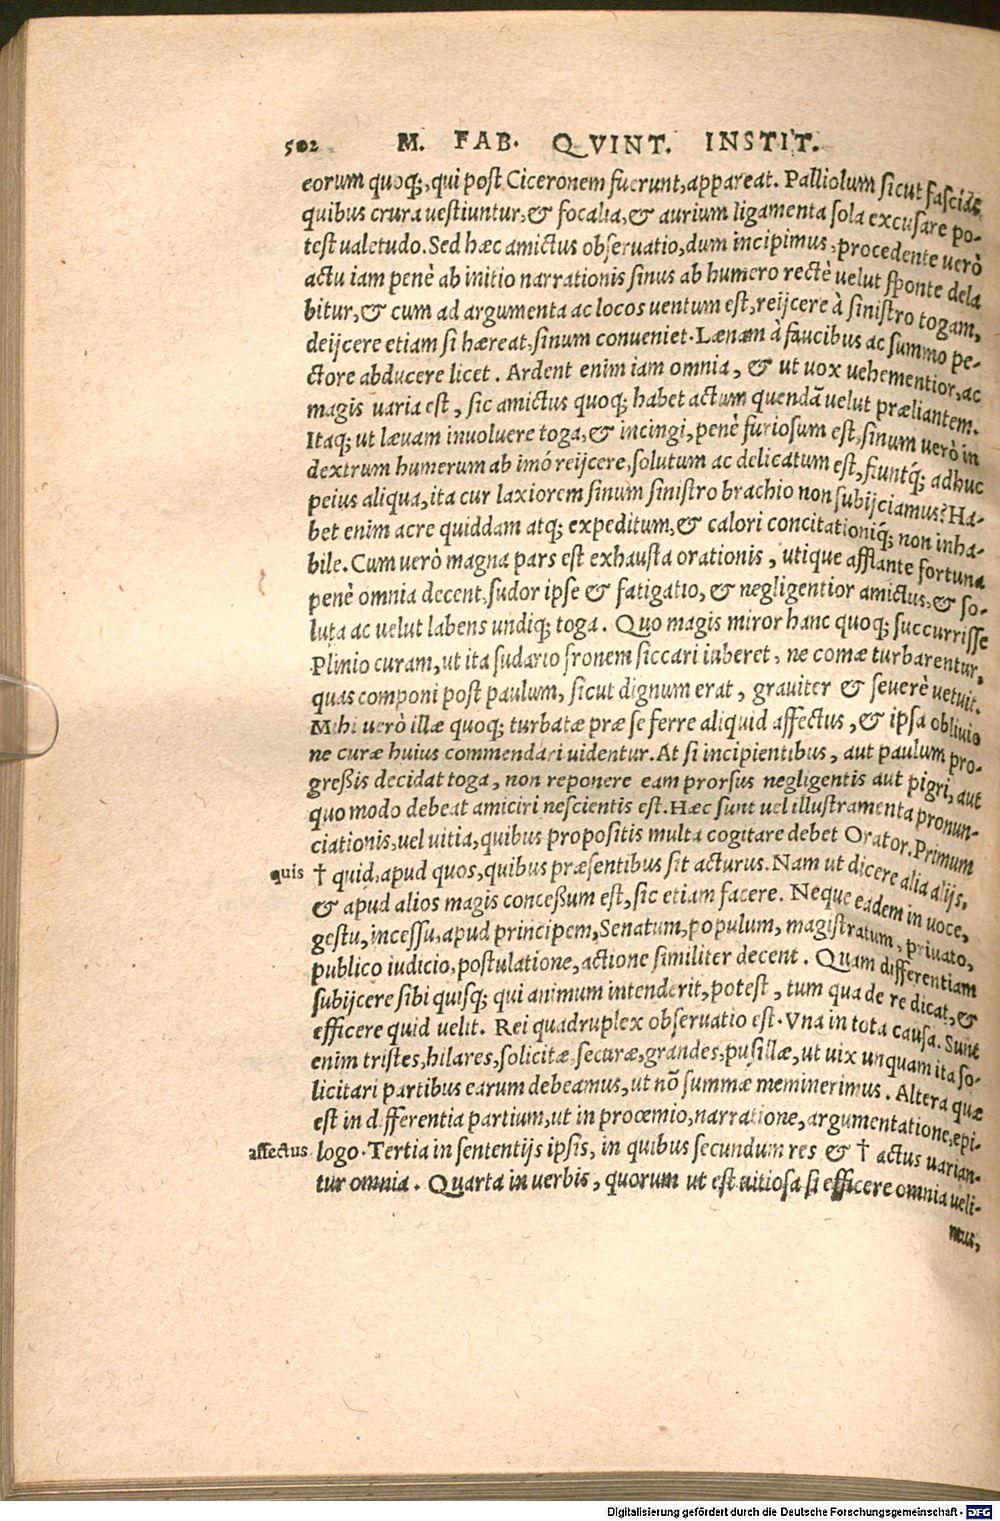 502 M. FAB. QVINT. INSTIT.
eorum quoq;, qui post Ciceronem fuerunt, appareat. Palliolum sicut fasciæ
quibus crura uestiuntur, & focalia, & aurium ligamenta sola excusare po-
test ualetudo. Sed hæc amictus obseruatio, dum incipimus, procedente uerò
actu iam penè ab initio narrationis sinus ab humero rectè uelut sponte dela
bitur, & cum ad argumenta ac locos uentum est, reijcere à sinistro togam,
deijcere etiam si hæreat, sinum conueniet. Lænam à faucibus ac summo pe-
ctore abducere licet. Ardent enim iam omnia, & ut uox uehementior, ac
magis uaria est, sic amictus quoq; habet actum quendã uelut præliantem.
Itaq; ut læuam inuoluere toga, & incingi, penè furiosum est, sinum uerò in
dextrum humerum ab imó reijcere, solutum ac delicatum est, fiuntq́; adhuc
peius aliqua, ita cur laxiorem sinum sinistro brachio non subijciamus? Ha-
bet enim acre quiddam atq; expeditum, & calori concitationiq́; non inha-
bile. Cum uerò magna pars est exhausta orationis, utique afflante fortuna
penè omnia decent, sudor ipse & fatigatio, & negligentior amictus, & so-
luta ac uelut labens undiq; toga. Quo magis miror hanc quoq; succurrisse
Plinio curam, ut ita sudario fronem siccari iuberet, ne comæ turbarentur,
quas componi post paulum, sicut dignum erat, grauiter & seuerè uetuit.
Mihi uerò illæ quoq; turbatæ præ se ferre aliquid affectus, & ipsa obliuio
ne curæ huius commendari uidentur. At si incipientibus, aut paulum pro-
greßis decidat toga, non reponere eam prorsus negligentis aut pigri, aut
quo modo debeat amiciri nescientis est. Hæc sunt uel illustramenta pronun-
ciationis, uel uitia, quibus propositis multa cogitare debet Orator. Primum
quis † quid, apud quos, quibus præsentibus sit acturus. Nam ut dicere alia alijs,
& apud alios magis conceßum est, sic etiam facere. Neque eadem in uoce,
gestu, incessu, apud principem, Senatum, populum, magistratum, priuato,
publico iudicio, postulatione, actione similiter decent. Quam differentiam
subijcere sibi quisq; qui animum intenderit, potest, tum qua de re dicat, &
efficere quid uelit. Rei quadruplex obseruatio est. Vna in tota causa. Sunt
enim tristes, hilares, solicitæ, securæ, grandes, pusillæ, ut uix unquam ita so-
licitari partibus earum debeamus, ut nõ summæ meminerimus. Altera quæ
est in differentia partium, ut in proœmio, narratione, argumentatione, epi-
affectus logo. Tertia in sententijs ipsis, in quibus secundum res & † actus uarian-
tur omnia. Quarta in uerbis, quorum ut est uitiosa si efficere omnia ueli-
mus,
Digitalisierung gefördert durch die Deutsche Forschungsgemeinschaft - DFG